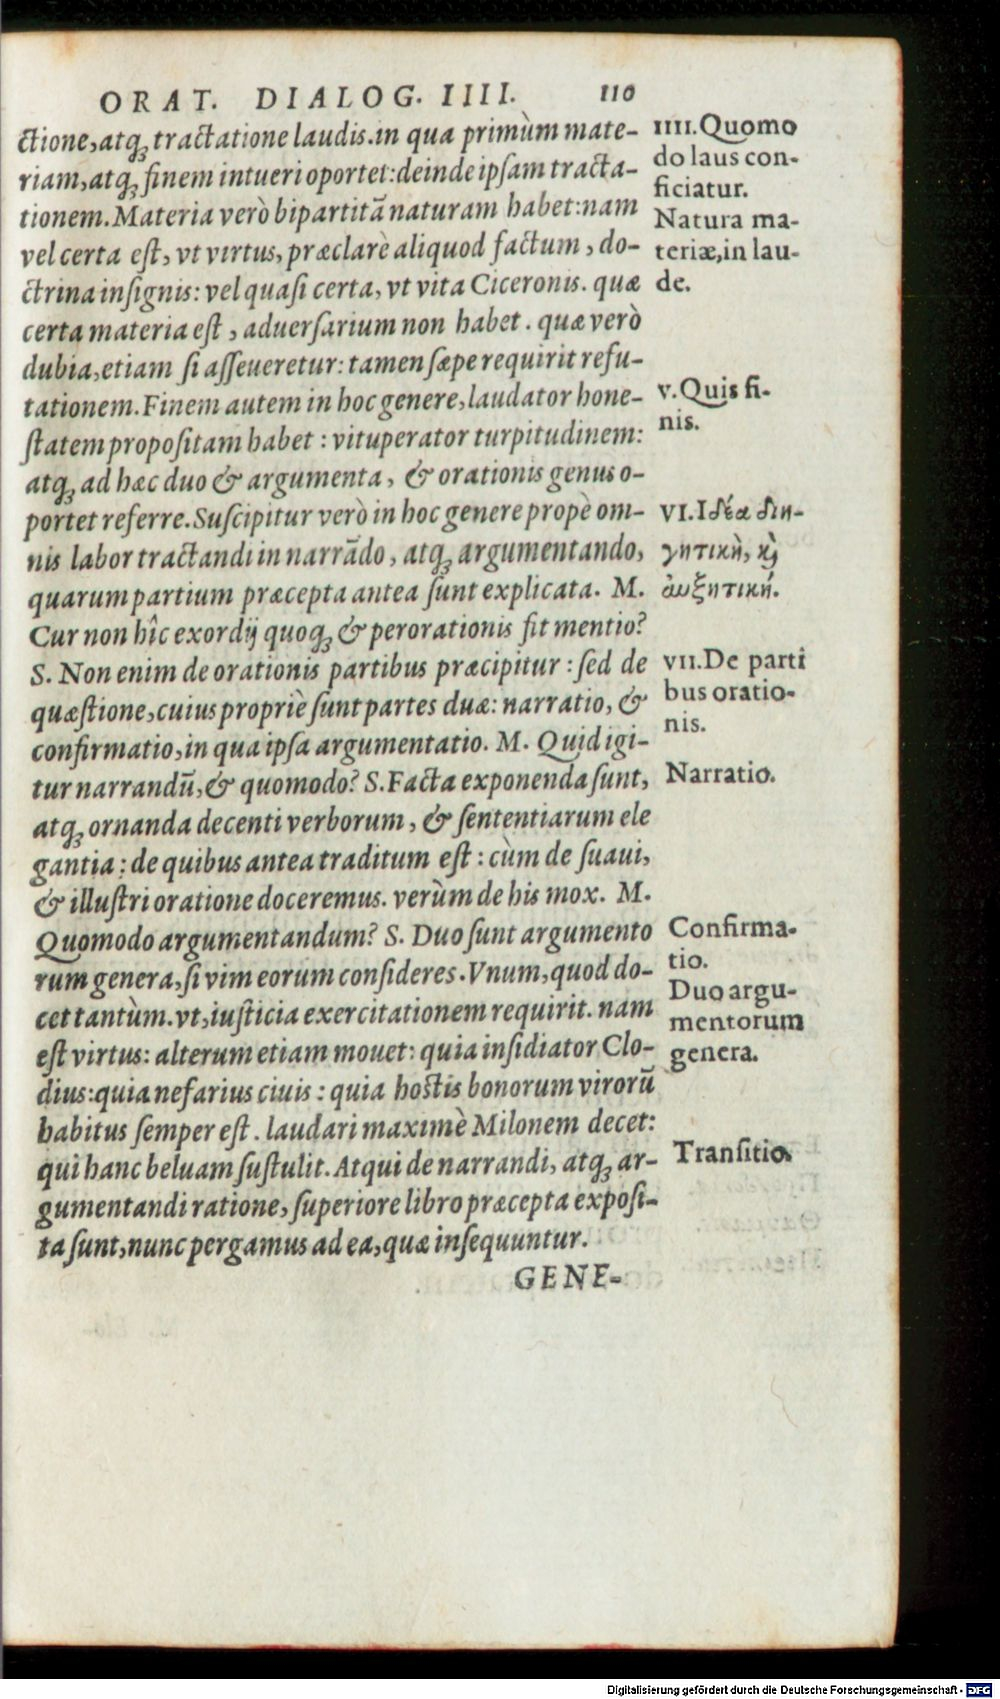 ORAT. DIALOG. IIII. 110
ctione,atq; tractatione laudis.in qua primùm mate-
riam,atq; finem intueri oportet:deinde ipſam tracta-
tionem.Materia verò bipartitā naturam habet:nam
vel certa eſt, vt virtus, præclarè aliquod factum, do-
ctrina inſignis: vel quaſi certa, vt vita Ciceronis. quæ
certa materia eſt, aduerſarium non habet. quæ verò
dubia,etiam ſi aſſeueretur: tamen ſæpe requirit refu-
tationem.Finem autem in hoc genere,laudator hone-
ſtatem propoſitam habet : vituperator turpitudinem:
atq; ad hæc duo & argumenta, & orationis genus o-
portet referre.Suſcipitur verò in hoc genere propè om-
nis labor tractandi in narrādo, atq; argumentando,
quarum partium præcepta antea ſunt explicata. M.
Cur non hîc exordij quoq; & perorationis fit mentio?
S. Non enim de orationis partibus præcipitur : ſed de
quæſtione,cuius propriè ſunt partes duæ: narratio, &
confirmatio,in qua ipſa argumentatio. M. Quid igi-
tur narrandū,& quomodo? S.Facta exponenda ſunt,
atq; ornanda decenti verborum, & ſententiarum ele
gantia : de quibus antea traditum eſt : cùm de ſuaui,
& illuſtri oratione doceremus. verùm de his mox. M.
Quomodo argumentandum? S. Duo ſunt argumento
rum genera,ſi vim eorum conſideres.Vnum,quod do-
cet tantùm.vt,iuſticia exercitationem requirit. nam
eſt virtus: alterum etiam mouet: quia inſidiator Clo-
dius:quia nefarius ciuis : quia hoſtis bonorum virorū
habitus ſemper eſt. laudari maximè Milonem decet:
qui hanc beluam ſuſtulit.Atqui de narrandi, atq; ar-
gumentandi ratione, ſuperiore libro præcepta expoſi-
ta ſunt,nunc pergamus ad ea,quæ inſequuntur.
GENE-
IIII.Quomo
do laus con-
ficiatur.
Natura ma-
teriæ,in lau-
de.
V.Quis fi-
nis.
VI.Iδέα διη-
γητικὴ, κỳ
αὐξητική.
VII.De parti
bus oratio-
nis.
Narratio.
Confirma-
tio.
Duo argu-
mentorum
genera.
Tranſitio.
Digitalisierung gefördert durch die Deutsche Forschungsgemeinschaft - DFG